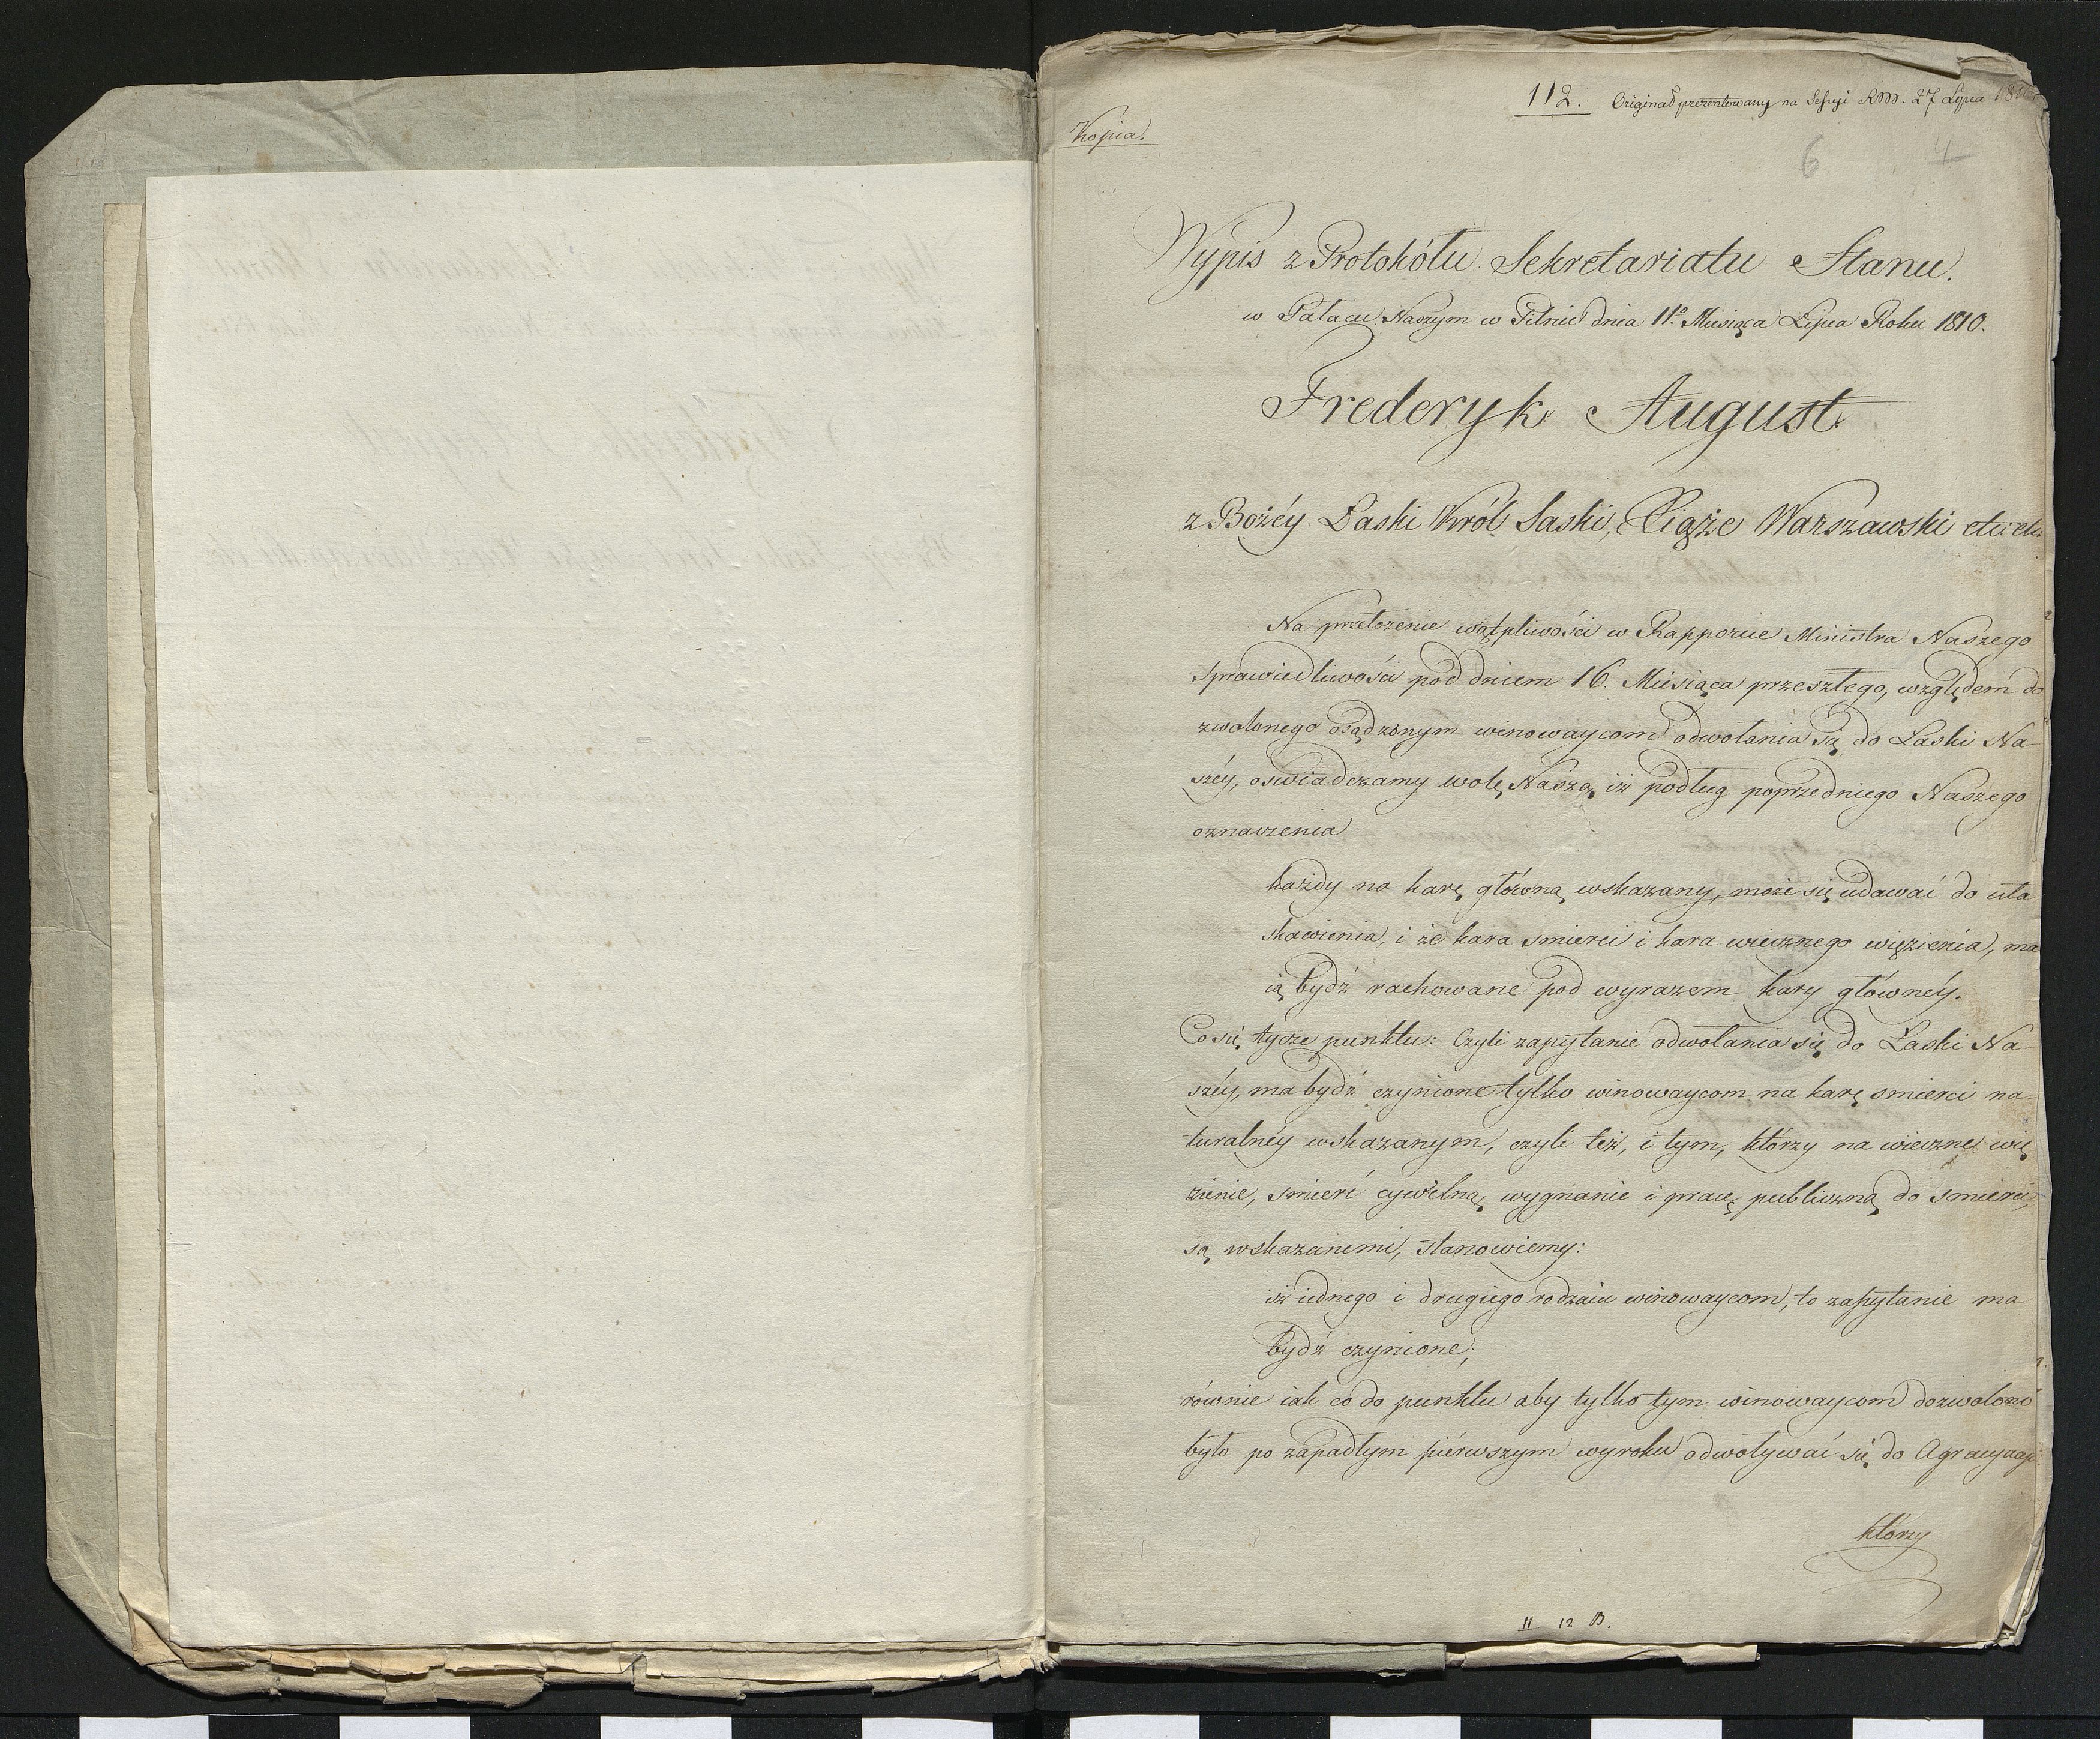 112. Originał prezentowany na Sessyi RM. 27 Lipca 1810
Kopia.
6 4
Wypis z Protokółu Sekretariatu Stanu.
w Pałacu Naszym w Pilnic dnia 11º Miesiąca Lipca Roku 1810.
Frederyk August
z Bożéy Łaski Król Saski, Xiąże Warszawski etc: etc:
Na przełożenie wątpliwości w Rapporcie Ministra Naszego
Sprawiedliwości pod dniem 16. Miesiąca przeszłego, względem do
zwolonego osądzonym winowaycom odwołania się do Łaski Na-
széy, oswiadczamy wolę Naszą, iż podług poprzedniego Naszego
oznaczenia
każdy na karę główną wskazany, może się udawać do uła
skawienia, i że kara smierci i kara wiecznego więzienia, ma
ią bydź rachowane pod wyrazem kary głównéy.
Co się tycze punktu: Czyli zapytanie odwołania się do Łaski Na-
széy, ma bydź czynione tylko winowaycom na karę smierci na-
turalnéy wskazanym, czyli też, i tym, którzy na wieczne wię
zienie, smierć cywilną, wygnanie i pracę publiczną do smierci,
są wskazanemi, stanowiemy:
iż iednego i drugiego rodzaiu winowaycom, to zapytanie ma
bydź czynione;
równie iak co do punktu aby tylko tym winowaycom dozwolono
było po zapadłym piérwszym wyroku odwoływać się do Agracyacyi
którzy
II 12 B.